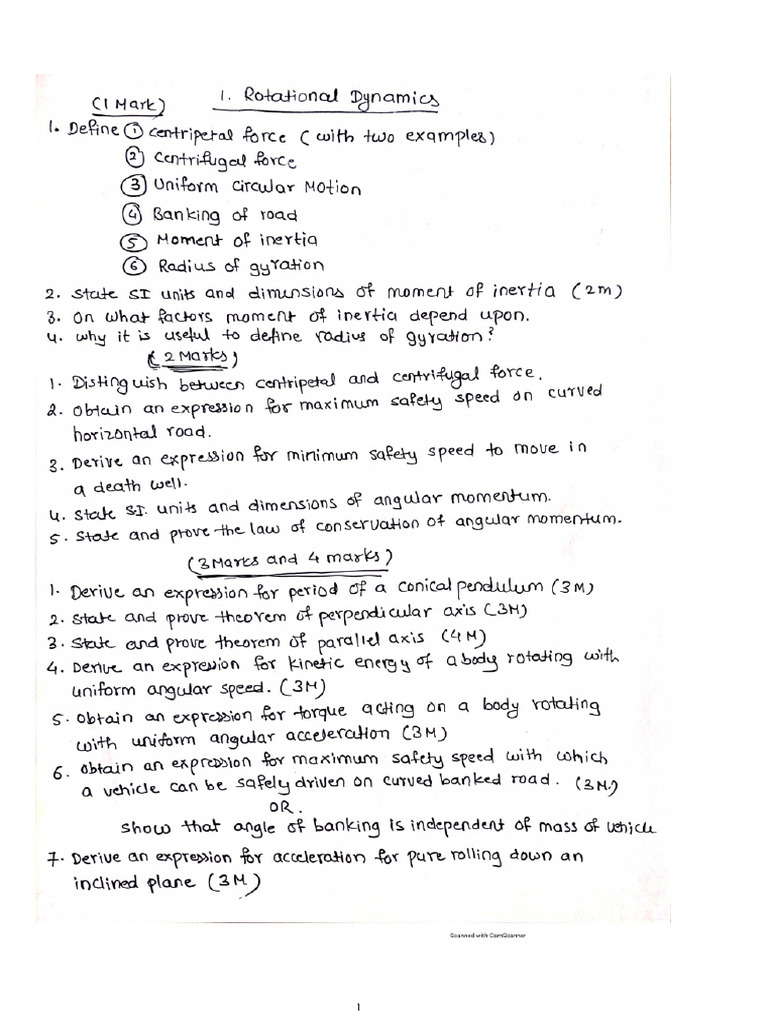 1. Rotational Dynamics
(1 Mark)
1. Define ① Centripetal force (with two examples)
② Centrifugal force
③ Uniform Circular Motion
④ Banking of road
⑤ Moment of inertia
⑥ Radius of gyration
2. State SI units and dimensions of moment of inertia (2m)
3. On what factors moment of inertia depend upon.
4. why it is useful to define radius of gyration?
(2 Marks)
1. Distinguish between centripetal and centrifugal force.
2. Obtain an expression for maximum safety speed on curved
horizontal road.
3. Derive an expression for minimum safety speed to move in
a death well.
4. State SI. units and dimensions of angular momentum.
5. State and prove the law of conservation of angular momentum.
(3 Marks and 4 marks)
1. Derive an expression for period of a conical pendulum (3M)
2. State and prove theorem of perpendicular axis (3M)
3. State and prove theorem of parallel axis (4M)
4. Derive an expression for kinetic energy of a body rotating with
uniform angular speed. (3M)
5. Obtain an expression for torque acting on a body rotating
with uniform angular acceleration (3M)
6. Obtain an expression for maximum safety speed with which
a vehicle can be safely driven on curved banked road. (3M.)
OR.
Show that angle of banking is independent of mass of vehicle
7. Derive an expression for acceleration for pure rolling down an
inclined plane (3M)
Scanned with CamScanner
1